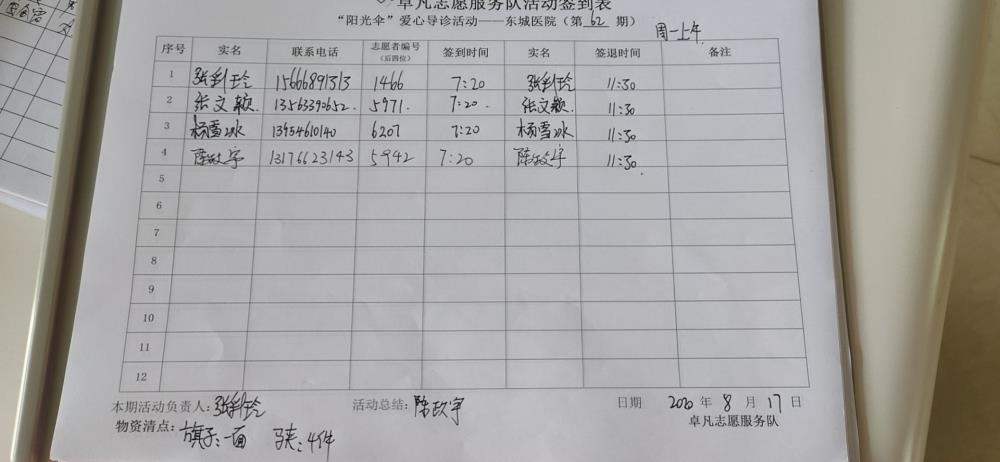 卓凡志愿服务队活动签到表
“阳光伞”爱心导诊活动——东城医院（第62期） 周一上午
序号 实名 联系电话 志愿者编号（后四位） 签到时间 实名 签退时间 备注
1 张利玲 15666891313 1466 7:20 张利玲 11:30
2 张文颖. 13563390652. 5971. 7:20. 张文颖. 11:30
3 杨雪冰 13954610140 6207 7:20 杨雪冰 11:30
4 陈政宇 13176623143 5942 7:20 陈政宇 11:30.
5
6
7
8
9
10
11
12
本期活动负责人:张利玲 活动总结:陈政宇 日期 2020年8月17日
物资清点: 旗子:一面 马夹:4件 卓凡志愿服务队